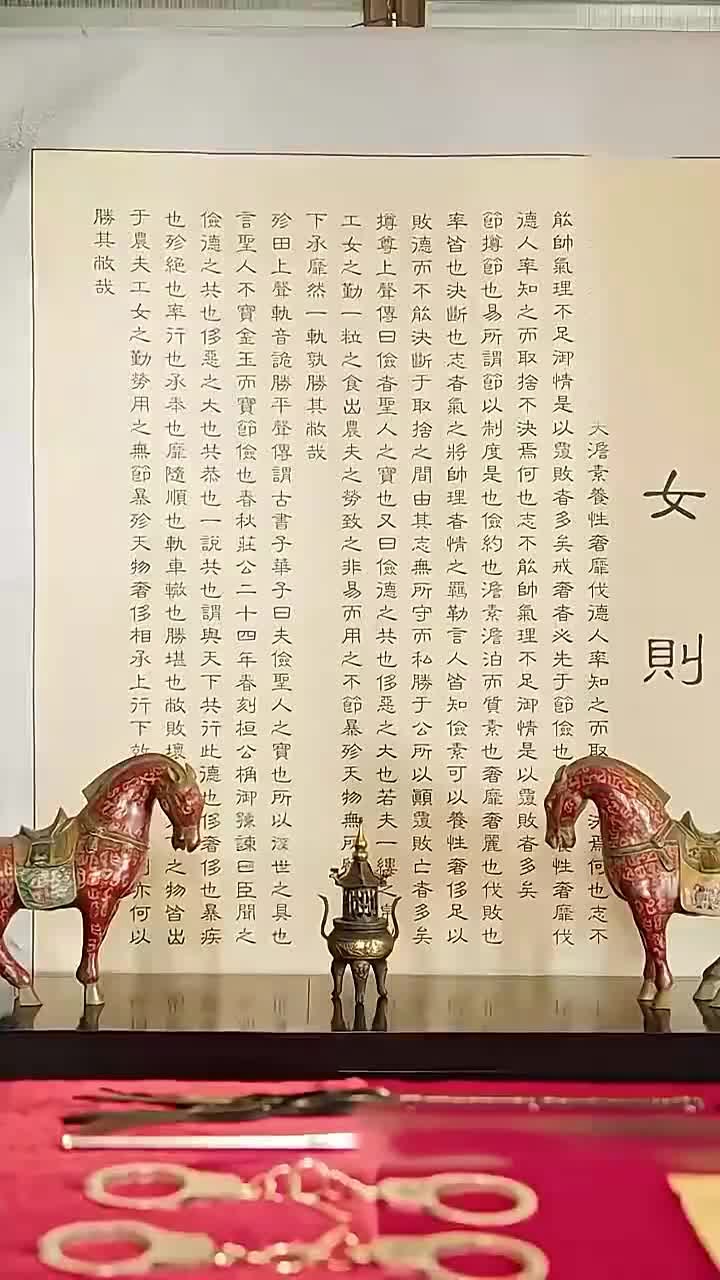 女則
夫澹素養性奢靡伐德人率知之而取決焉何也志不
能帥氣理不足御情是以覆敗者多矣戒奢者必先于節儉也養性奢靡伐
德人率知之而取捨不決焉何也志不能帥氣理不足御情是以覆敗者多矣
節撙節也易所謂節以制度是也儉約也澹素澹泊而質素也奢靡奢麗也伐敗也
率皆也決斷也志者氣之將帥理者情之羈勒言人皆知儉素可以養性奢侈足以
敗德而不能決斷于取捨之間由其志無所守而私勝于公所以顚覆敗亡者多矣
撙尊上聲傳曰儉者聖人之寶也又曰儉德之共也侈惡之大也若夫一縷之帛
工女之勤一粒之食出農夫之勞致之非易而用之不節暴殄天物無所
下承靡然一軌孰勝其敝哉
殄田上聲軌音詭勝平聲傳謂古書子華子曰夫儉聖人之寶也所以世之具也
言聖人不寶金玉而寶節儉也春秋莊公二十四年春刻桓公桷御孫諫曰臣聞之
儉德之共也侈惡之大也共恭也一說共也謂與天下共行此德也侈奢侈也暴疾
也殄絕也率行也承奉也靡隨順也軌車轍也勝堪也敝敗壞之物皆出
于農夫工女之勤勞用之無節暴殄天物奢侈相承上行下效亦何以
勝其敝哉